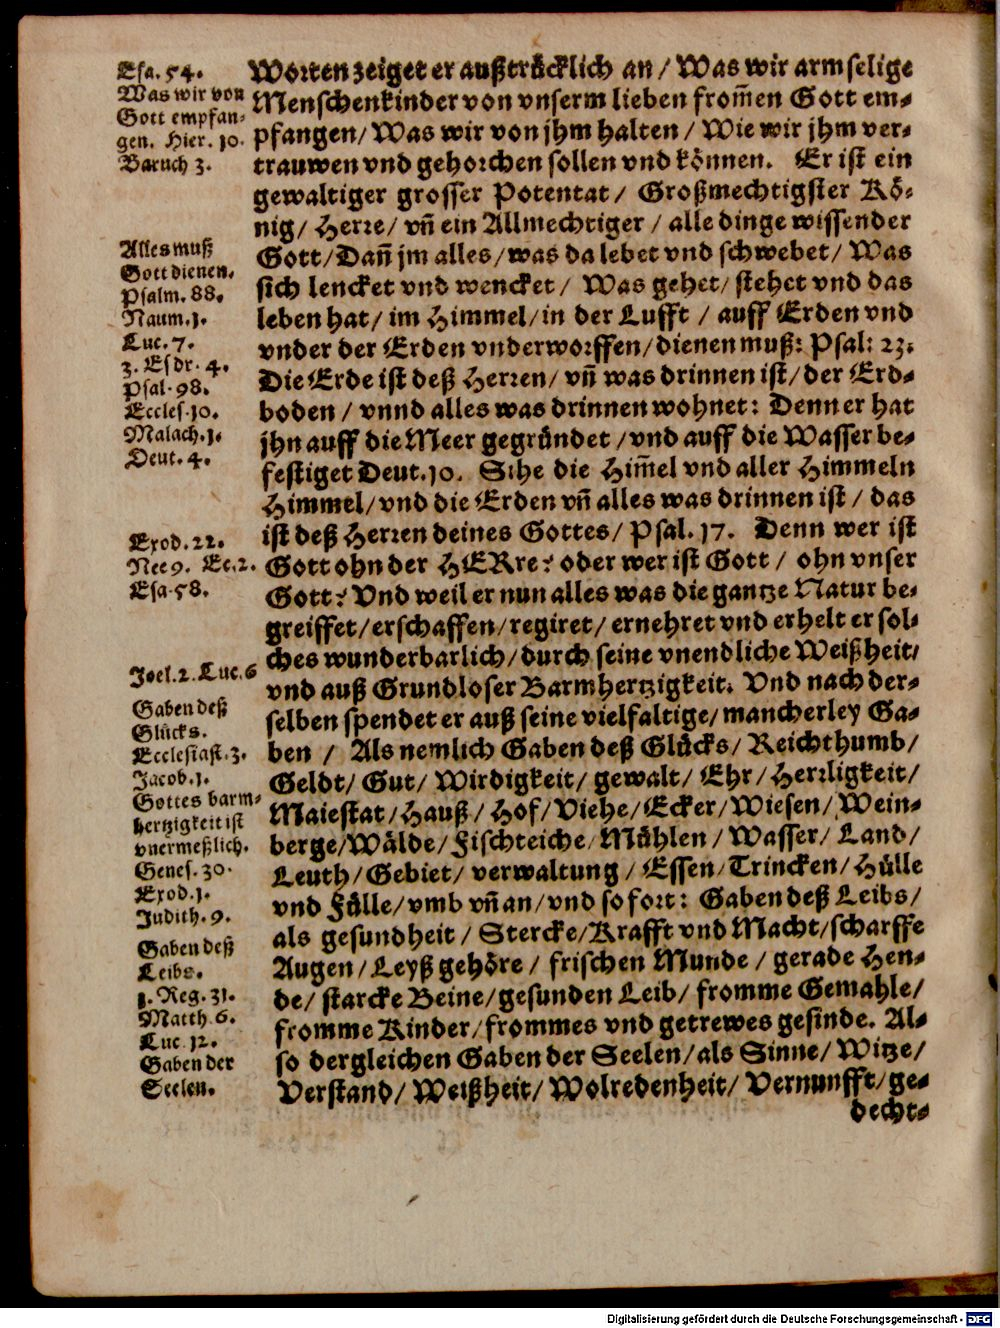 Esa. 54.
Was wir von
Gott empfan-
gen. Hier. 10.
Baruch 3.
Alles muß
Gott dienen.
Psalm. 88.
Naum. 1.
Luc. 7.
3. Esdr. 4.
Psal. 98.
Eccles. 10.
Malach. 1.
Deut. 4.
Exod. 22.
Nee 9. Ec. 2.
Esa. 58.
Joel. 2. Luc. 6
Gaben deß
Glücks.
Ecclesiast. 3.
Jacob. 1.
Gottes barm-
hertzigkeit ist
vnermeßlich.
Genes. 30.
Exod. 1.
Judith. 9.
Gaben deß
Leibs.
1. Reg. 31.
Matth. 6.
Luc. 12.
Gaben der
Seelen.
Worten zeiget er außtrücklich an / Was wir armselige
Menschenkinder von vnserm lieben from̃en Gott em-
pfangen / Was wir von jhm halten / Wie wir jhm ver-
trauwen vnd gehorchen sollen vnd können. Er ist ein
gewaltiger grosser Potentat / Großmechtigster Kö-
nig / Herre / vñ ein Allmechtiger / alle dinge wissender
Gott / Dañ jm alles / was da lebet vnd schwebet / Was
sich lencket vnd wencket / Was gehet / stehet vnd das
leben hat / im Himmel / in der Lufft / auff Erden vnd
vnder der Erden vnderworffen / dienen muß: Psal: 23.
Die Erde ist deß Herren / vñ was drinnen ist / der Erd-
boden / vnnd alles was drinnen wohnet: Denn er hat
jhn auff die Meer gegründet / vnd auff die Wasser be-
festiget Deut. 10. Sihe die Him̃el vnd aller Himmeln
Himmel / vnd die Erden vñ alles was drinnen ist / das
ist deß Herren deines Gottes / Psal. 17. Denn wer ist
Gott ohn der HERre? oder wer ist Gott / ohn vnser
Gott? Vnd weil er nun alles was die gantze Natur be-
greiffet / erschaffen / regiret / ernehret vnd erhelt er sol-
ches wunderbarlich / durch seine vnendliche Weißheit /
vnd auß Grundloser Barmhertzigkeit. Vnd nach der-
selben spendet er auß seine vielfaltige / mancherley Ga-
ben / Als nemlich Gaben deß Glücks / Reichthumb /
Geldt / Gut / Wirdigkeit / gewalt / Ehr / Herrligkeit /
Maiestat / Hauß / Hof / Viehe / Ecker / Wiesen / Wein-
berge / Wälde / Fischteiche / Mühlen / Wasser / Land /
Leuth / Gebiet / verwaltung / Essen / Trincken / Hülle
vnd Fülle / vmb vñ an / vnd so fort: Gaben deß Leibs /
als gesundheit / Stercke / Krafft vnd Macht / scharffe
Augen / Leyß gehöre / frischen Munde / gerade Hen-
de / starcke Beine / gesunden Leib / fromme Gemahle /
fromme Kinder / frommes vnd getrewes gesinde. Al-
so dergleichen Gaben der Seelen / als Sinne / Witze /
Verstand / Weißheit / Wolredenheit / Vernunfft / ge-
decht-
Digitalisierung gefördert durch die Deutsche Forschungsgemeinschaft - DFG